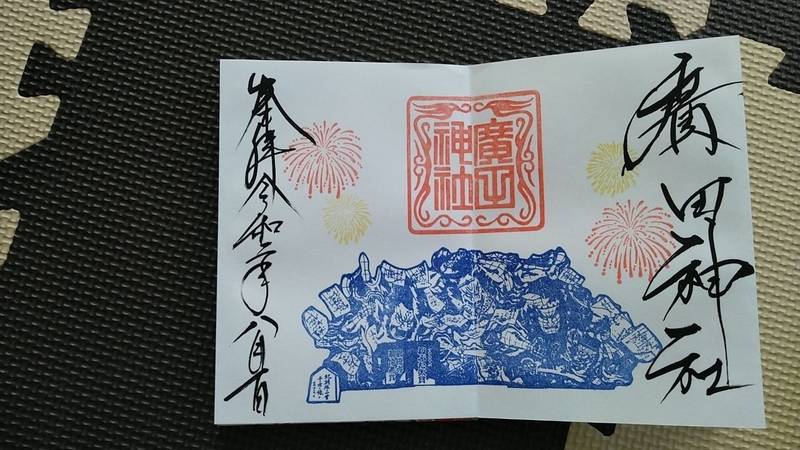 廣田神社
廣田
神社
奉拝 令和二年八月一日